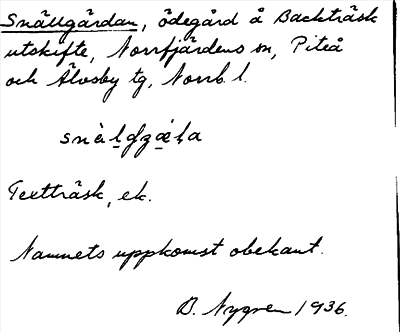 Snällgårdan, ödegård å Backträsk
utskifte, Norrfjärdens sn, Piteå
och Älvsby tg, Norrb. l.
Textträsk, ek.
Namnets uppkomst obekant.
B. Nygren 1936.